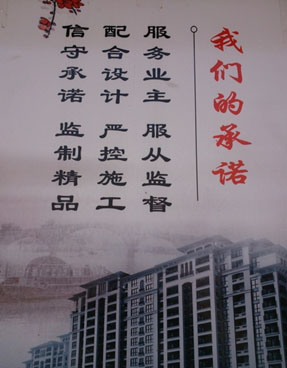 我们的承诺
服务业主 服从监督
配合设计 严控施工
信守承诺 监制精品